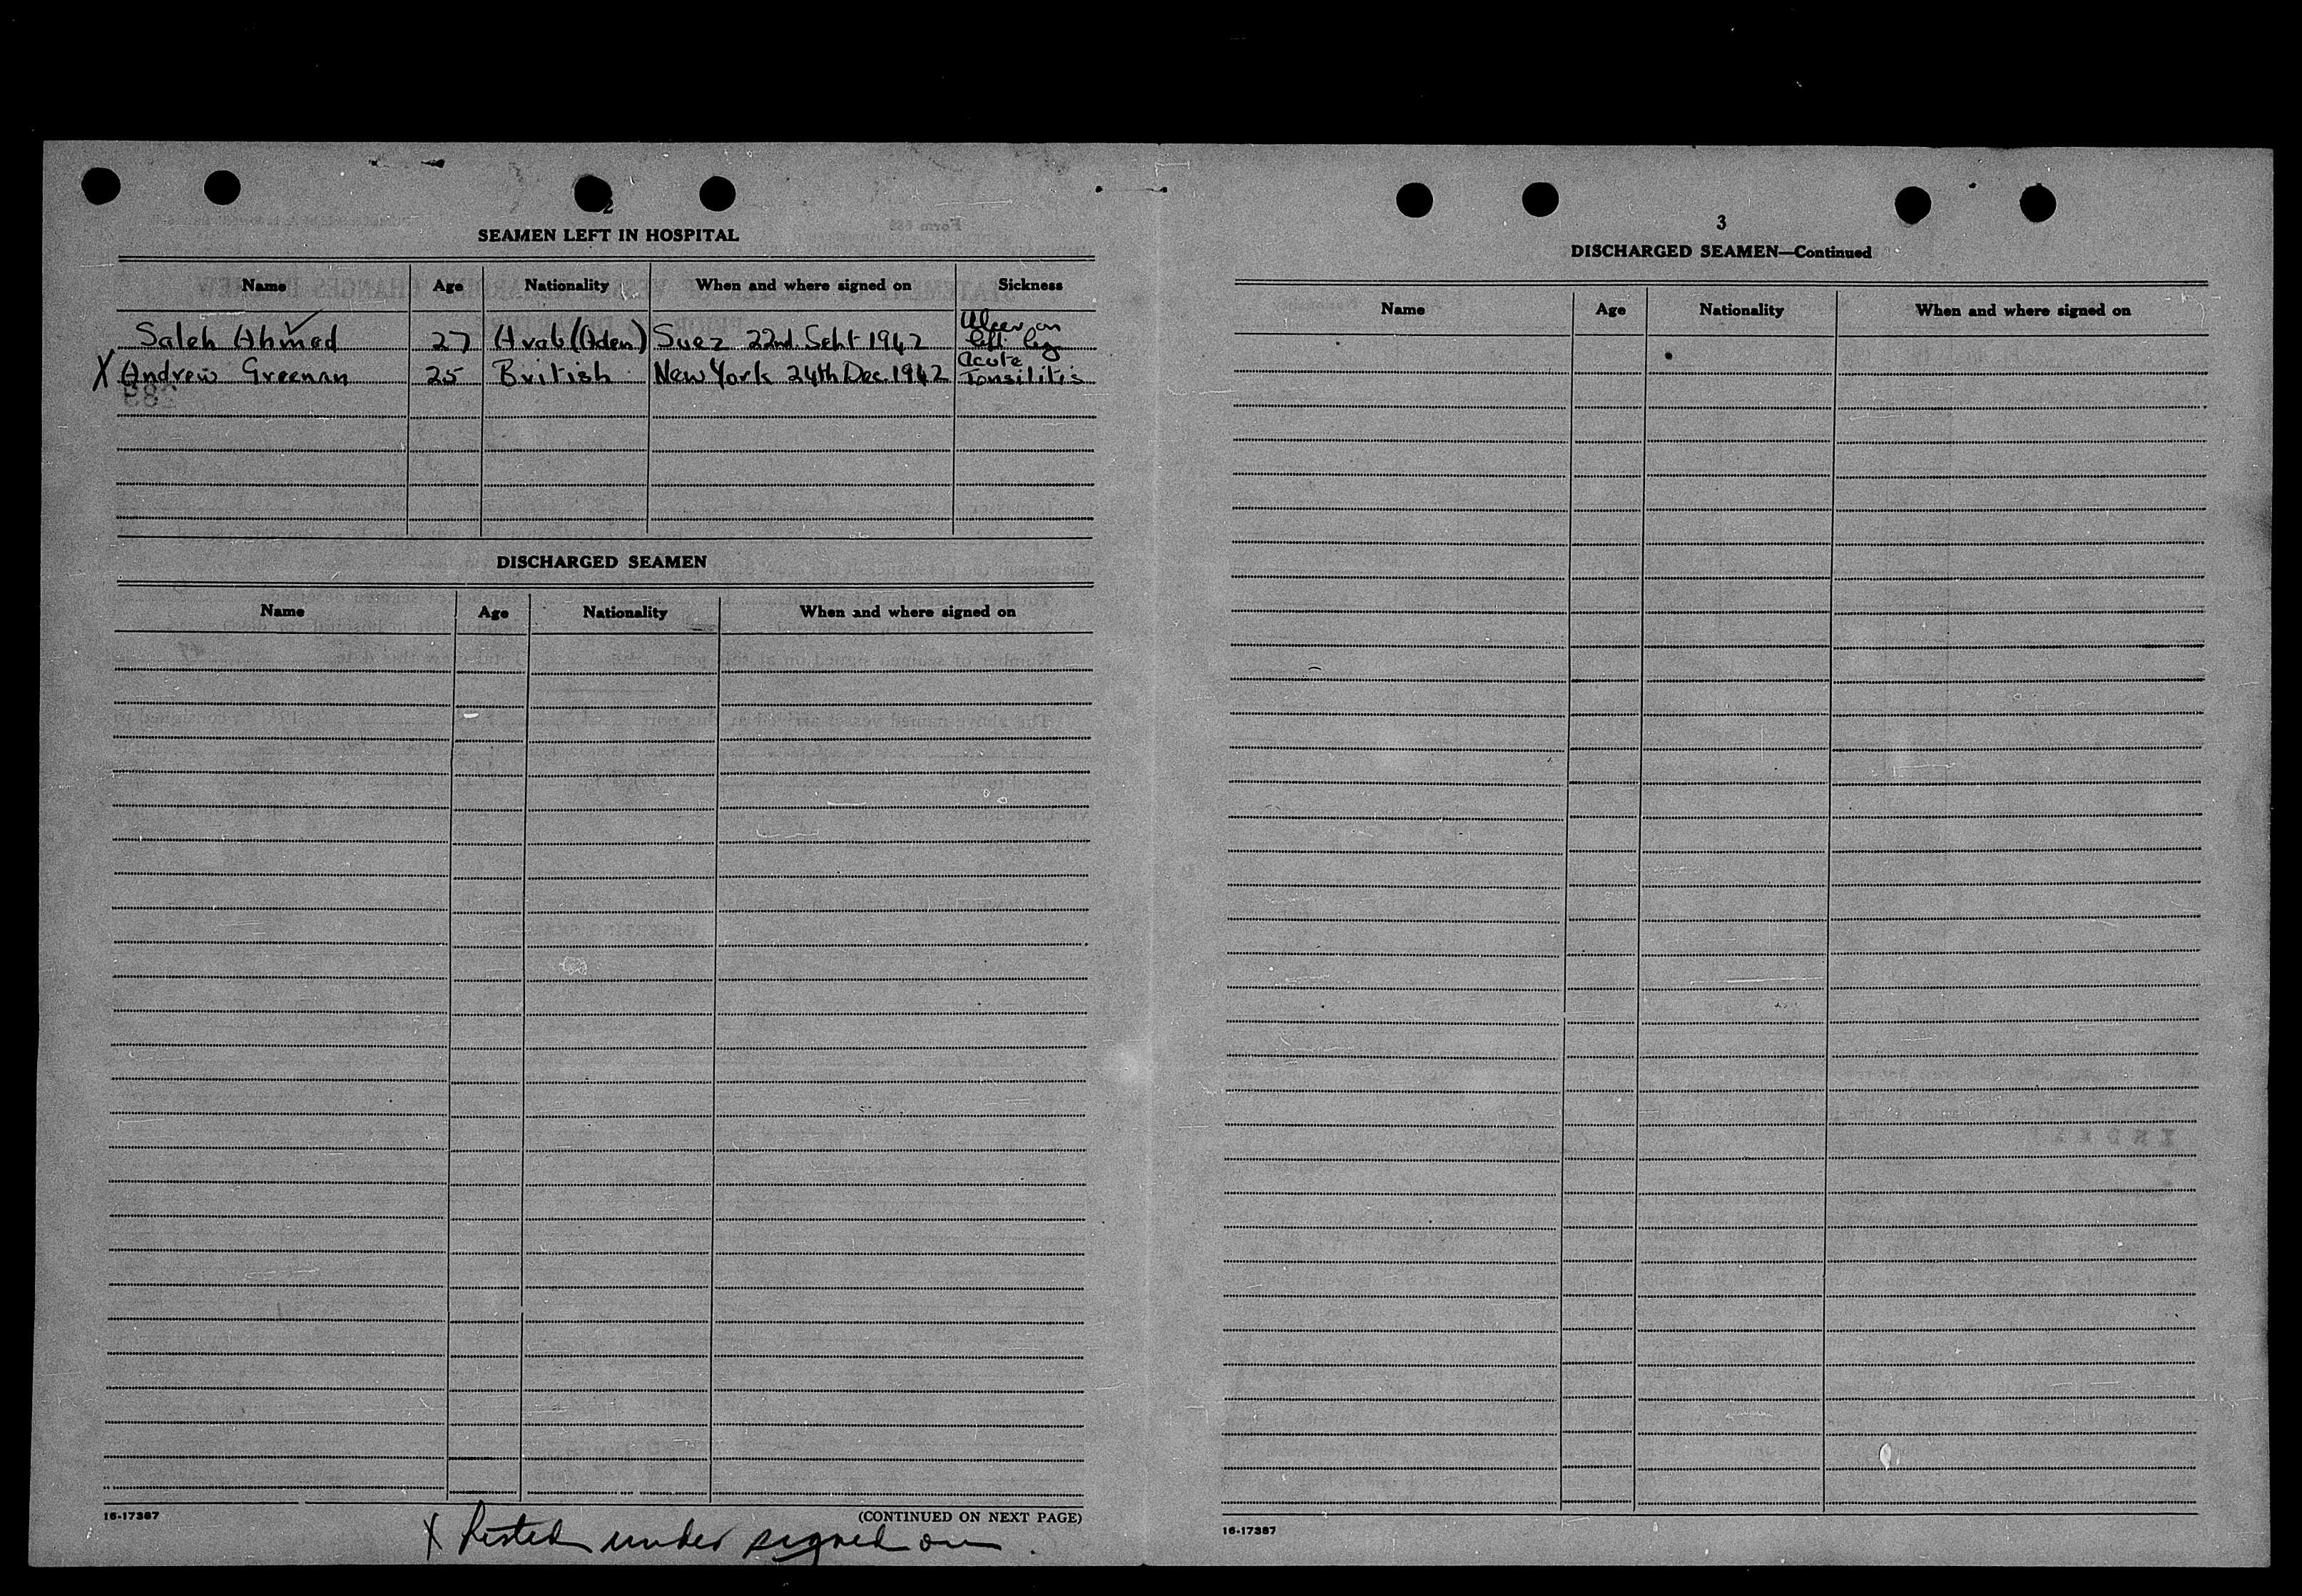 2
SEAMEN LEFT IN HOSPITAL
Name Age Nationality When and where signed on Sickness
Saleh Ahmed 27 Arab (Aden) Suez 22nd Sept 1942 Ulcer on left leg
X Andrew Greenan 25 British New York 24th Dec. 1942 Acute Tonsilitis
DISCHARGED SEAMEN
Name Age Nationality When and where signed on
16-17387 (CONTINUED ON NEXT PAGE)
X Listed under signed on
3
DISCHARGED SEAMEN—Continued
Name Age Nationality When and where signed on
16-17387